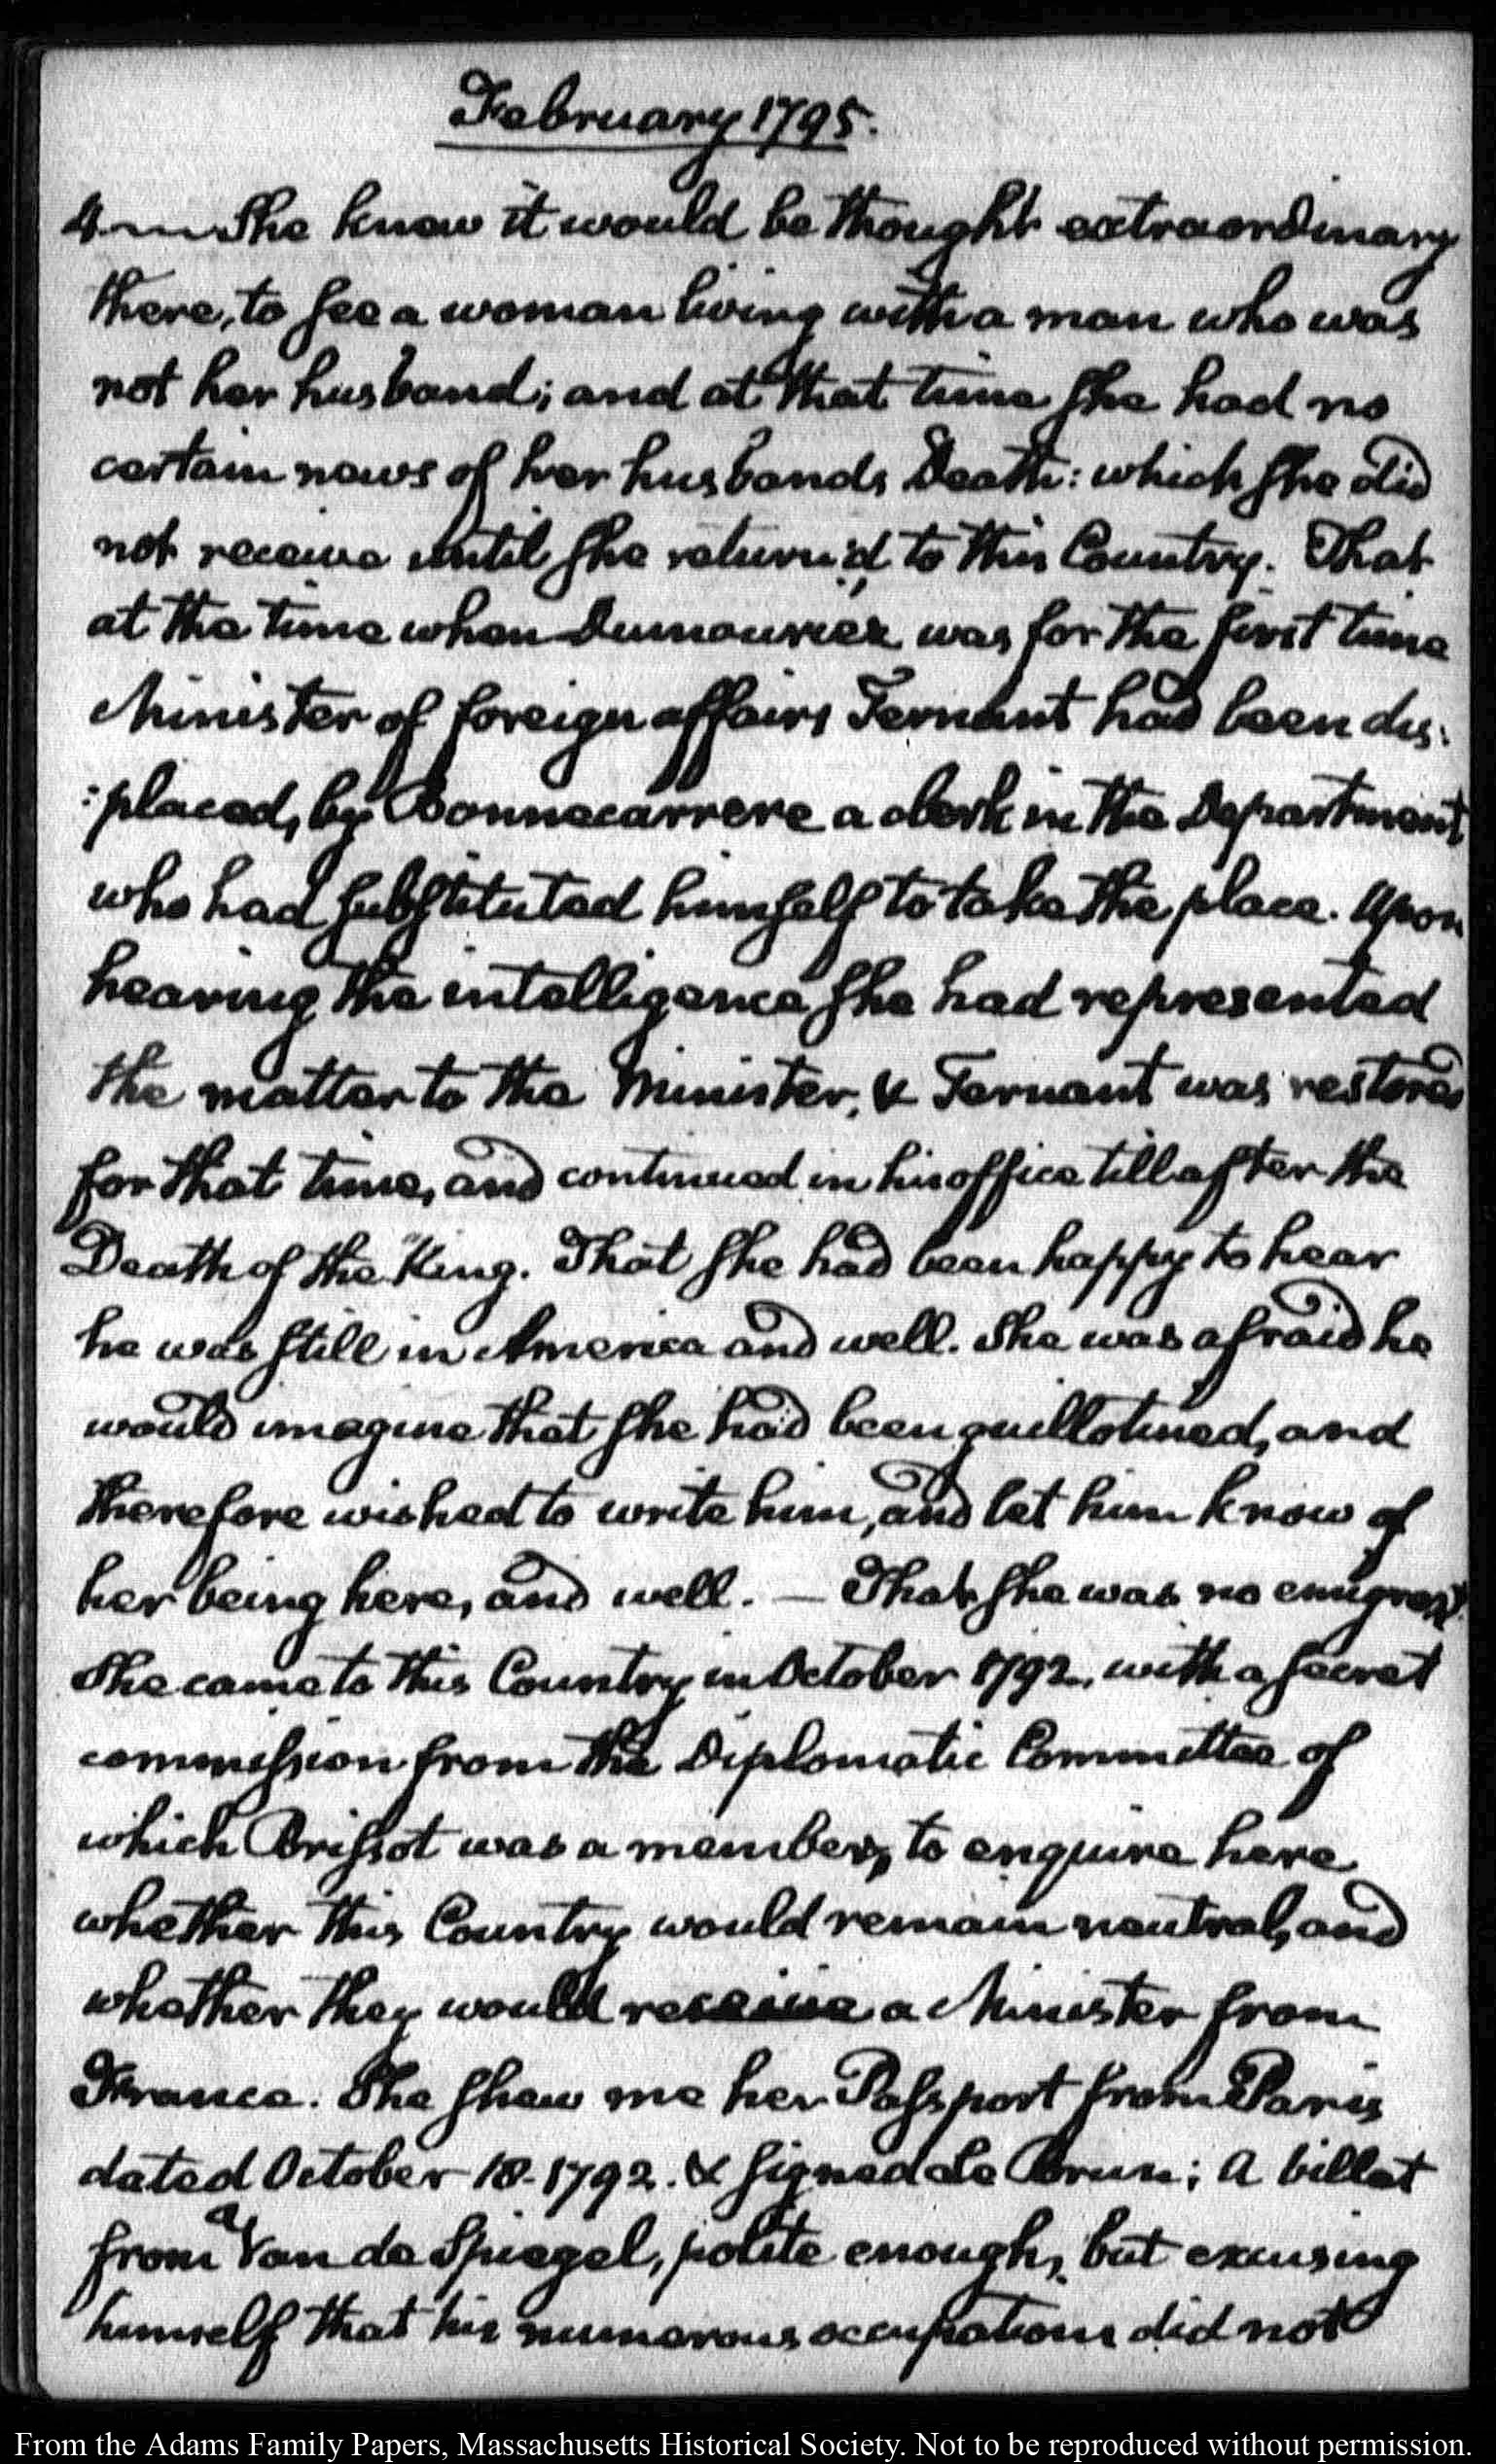 February 1795.
4 She knew it would be thought extraordinary
there, to see a woman living with a man who was
not her husband; and at that time she had no
certain news of her husbands Death: which she did
not receive until she return'd to this Country. That
at the time when Dumouriez was for the first time
Minister of foreign affairs Ternant had been dis:
:placed, by Bonnecarrere a clerk in the Department
who had substituted himself to take the place. Upon
hearing the intelligence she had represented
the matter to the Minister, & Ternant was restored
for that time, and continued in his office till after the
Death of the King. That she had been happy to hear
he was still in America and well. She was afraid he
would imagine that she had been guillotined, and
therefore wished to write him, and let him know of
her being here, and well. — That she was no emigrant.
She came to this Country in October 1792, with a secret
commission from the Diplomatic Committee of
which Brissot was a member, to enquire here
whether this Country would remain neutral, and
whether they would receive a Minister from
France. She shew me her Passport from Paris
dated October 18. 1792. & signed Le Brun; A billet
from a Van de Spiegel, polite enough, but excusing
himself that his numerous occupations did not
From the Adams Family Papers, Massachusetts Historical Society. Not to be reproduced without permission.